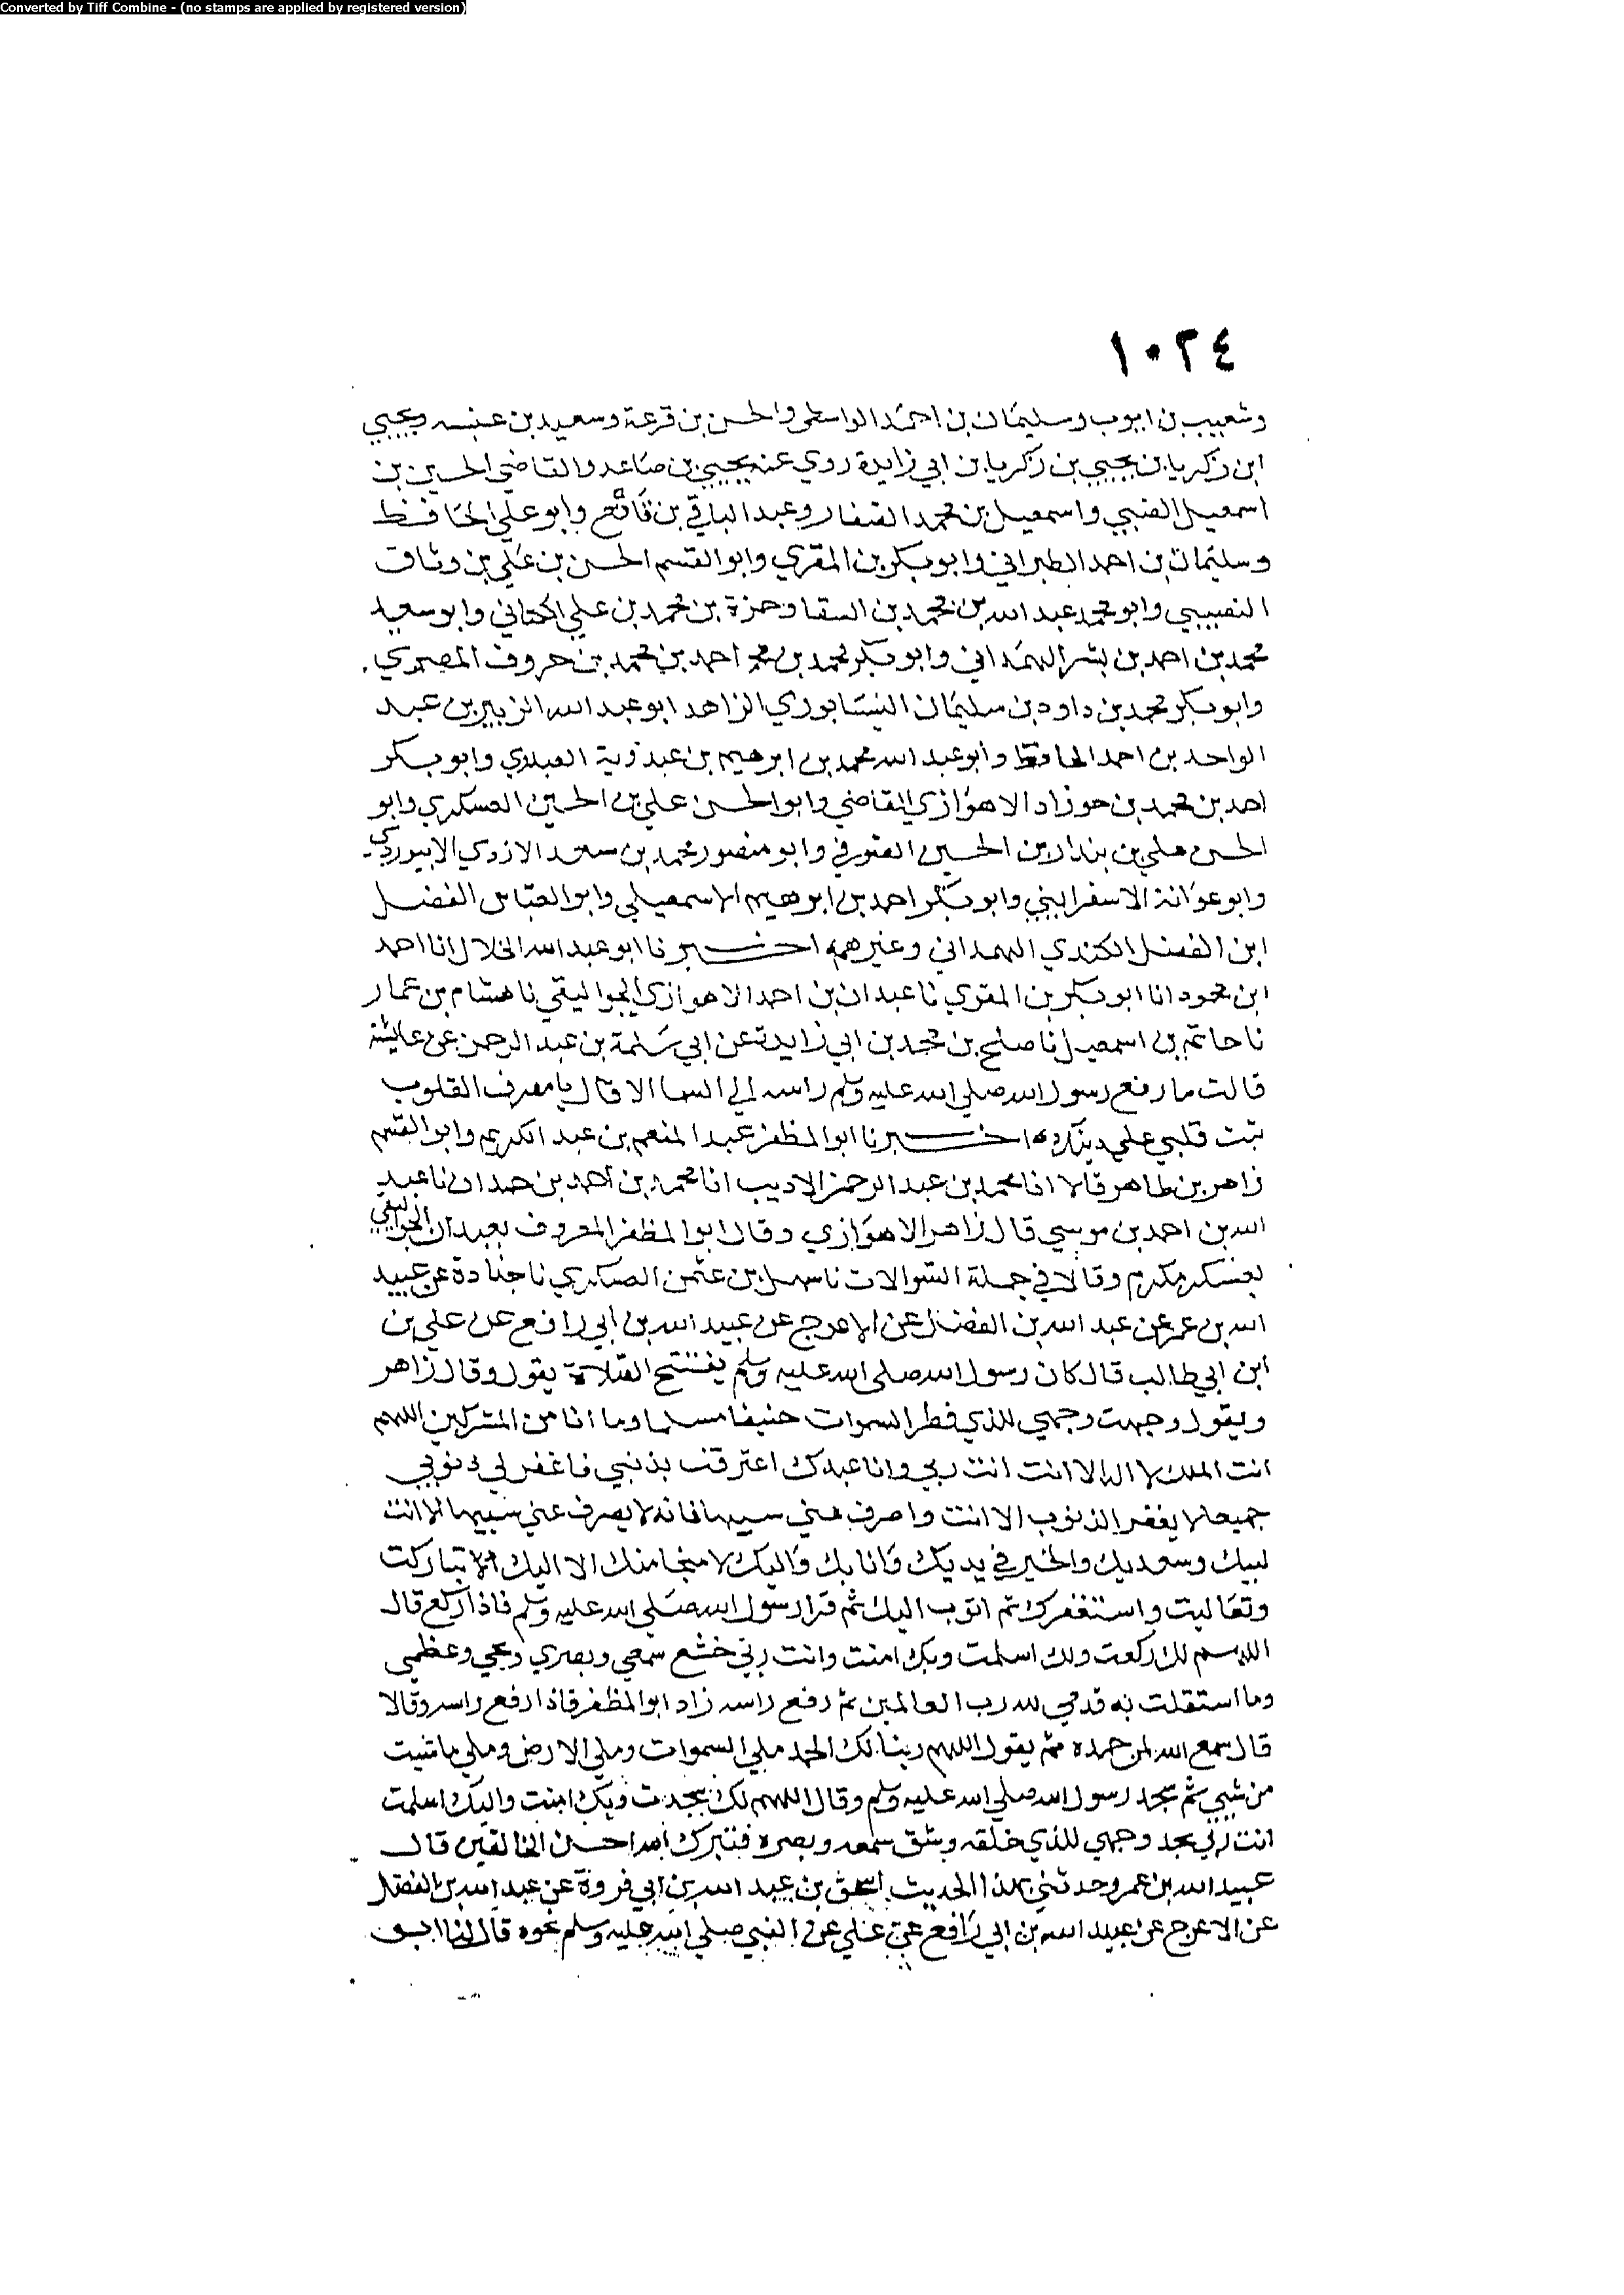 Converted by Tiff Combine - (no stamps are applied by registered version)
١٠٢٤
وشعيب بن ايوب وسليمان بن احمد الواسطي والحسن بن قزعة وسعيد بن عنبسه ويحيي
ابن زكريا بن يحيي بن زكريا بن ابي زايدة روي عنه يحيي بن صاعد والقاضي الحسين بن
اسمعيل الضبي واسمعيل بن محمد الصفار وعبد الباقي بن قانع وابو علي الحافظ
وسليمان بن احمد الطبراني وابو بكر بن المقري وابو القسم الحسن بن علي بن وثاق
النصيبي وابو محمد عبد الله بن محمد بن السقا وحمزة بن محمد بن علي الكتاني وابو سعيد
محمد بن احمد بن بشر الهمداني وابو بكر محمد بن احمد بن محمد بن حروف المصري
وابو بكر محمد بن داود بن سليمان النيسابوري الزاهد ابو عبد الله الزبير بن عبد
الواحد بن احمد الحافظ وابو عبد الله محمد بن ابرهيم بن عبدوية العبدوي وابو بكر
احمد بن محمد بن حوزاد الاهوازي القاضي وابو الحسن علي بن الحسين العسكري وابو
الحسن علي بن بندار بن الحسين الصوفي وابو منصور محمد بن سعد الازدي الابيوردي
وابو عوانة الاسفرايني وابو بكر احمد بن ابرهيم الاسمعيلي وابو العباس الفضل
ابن الفضل الكندي الهمداني وغيرهم اخبرنا ابو عبد الله الخلال انا احمد
ابن محمود انا ابو بكر بن المقري نا عبدان بن احمد الاهوازي الجواليقي نا هشام بن عمار
نا حاتم بن اسمعيل نا صلح بن محمد بن ابي زايدة عن ابي سلمة بن عبد الرحمن عن عايشة
قالت ما رفع رسول الله صلي الله عليه وسلم راسه الي السما الا قال يا مصرف القلوب
ثبت قلبي علي دينك اخبرنا ابو المظفر عبد المنعم بن عبد الكريم وابو القسم
زاهر بن طاهر قالا انا محمد بن عبد الرحمن الاديب انا محمد بن احمد بن حمدان نا عبد
الله بن احمد بن موسي قال زاهر الاهوازي وقال ابو المظفر المعروف بعبدان الجواليقي
بعسكر مكرم وقالا في جملة السوالات نا سهل بن عثمن العسكري نا جنادة عن عبيد
الله بن عمر عن عبد الله بن الفضل عن الاعرج عن عبيد الله بن ابي رافع عن علي بن
ابن ابي طالب قال كان رسول الله صلي الله عليه وسلم يفتتح الصلاة يقول وقال زاهر
ويقول وجهت وجهي للذي فطر السموات حنيفا مسلما وما انا من المشركين اللهم
انت الملك لا اله الا انت انت ربي وانا عبدك اعترفت بذنبي فاغفر لي ذنوبي
جميعا لا يغفر الذنوب الا انت واصرف عني سيها فانه لا يصرف عني سييها الا انت
لبيك وسعديك والخير في يديك وانا بك واليك لا منجا منك الا اليك تباركت
وتعاليت واستغفرك ثم اتوب اليك ثم قرا رسول الله صلي الله عليه وسلم فاذا ركع قال
اللهم لك ركعت ولك اسلمت وبك امنت وانت ربي خشع سمعي وبصري ومخي وعظمي
وما استقلت به قدمي لله رب العالمين ثم رفع راسه زاد ابو المظفر فاذا رفع راسه وقالا
قال سمع الله لمن حمده ثم يقول اللهم ربنا لك الحمد ملي السموات وملي الارض وملي ما شيت
من شيي ثم سجد رسول الله صلي الله عليه وسلم وقال اللهم لك سجدت وبك امنت واليك اسلمت
انت ربي سجد وجهي للذي خلقه وشق سمعه وبصره فتبرك الله احسن الخالقين قال
عبيد الله بن عمر وحدثني بهذا الحديث اسحق بن عبد الله بن ابي فروة عن عبد الله بن الفضل
عن الاعرج عن عبيد الله بن ابي رافع عن علي عن النبي صلي الله عليه وسلم نحوه قال لنا ابو